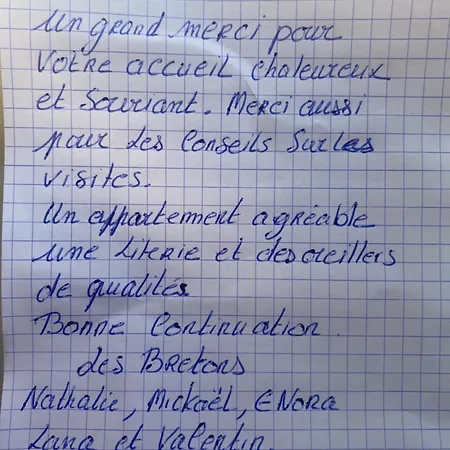 Un grand merci pour
votre accueil chaleureux
et souriant. Merci aussi
pour les conseils sur les
visites.
Un appartement agréable
une literie et des oreillers
de qualités
Bonne continuation.
des Bretons
Nathalie, Mickaël, ENora
Lana et Valentin.